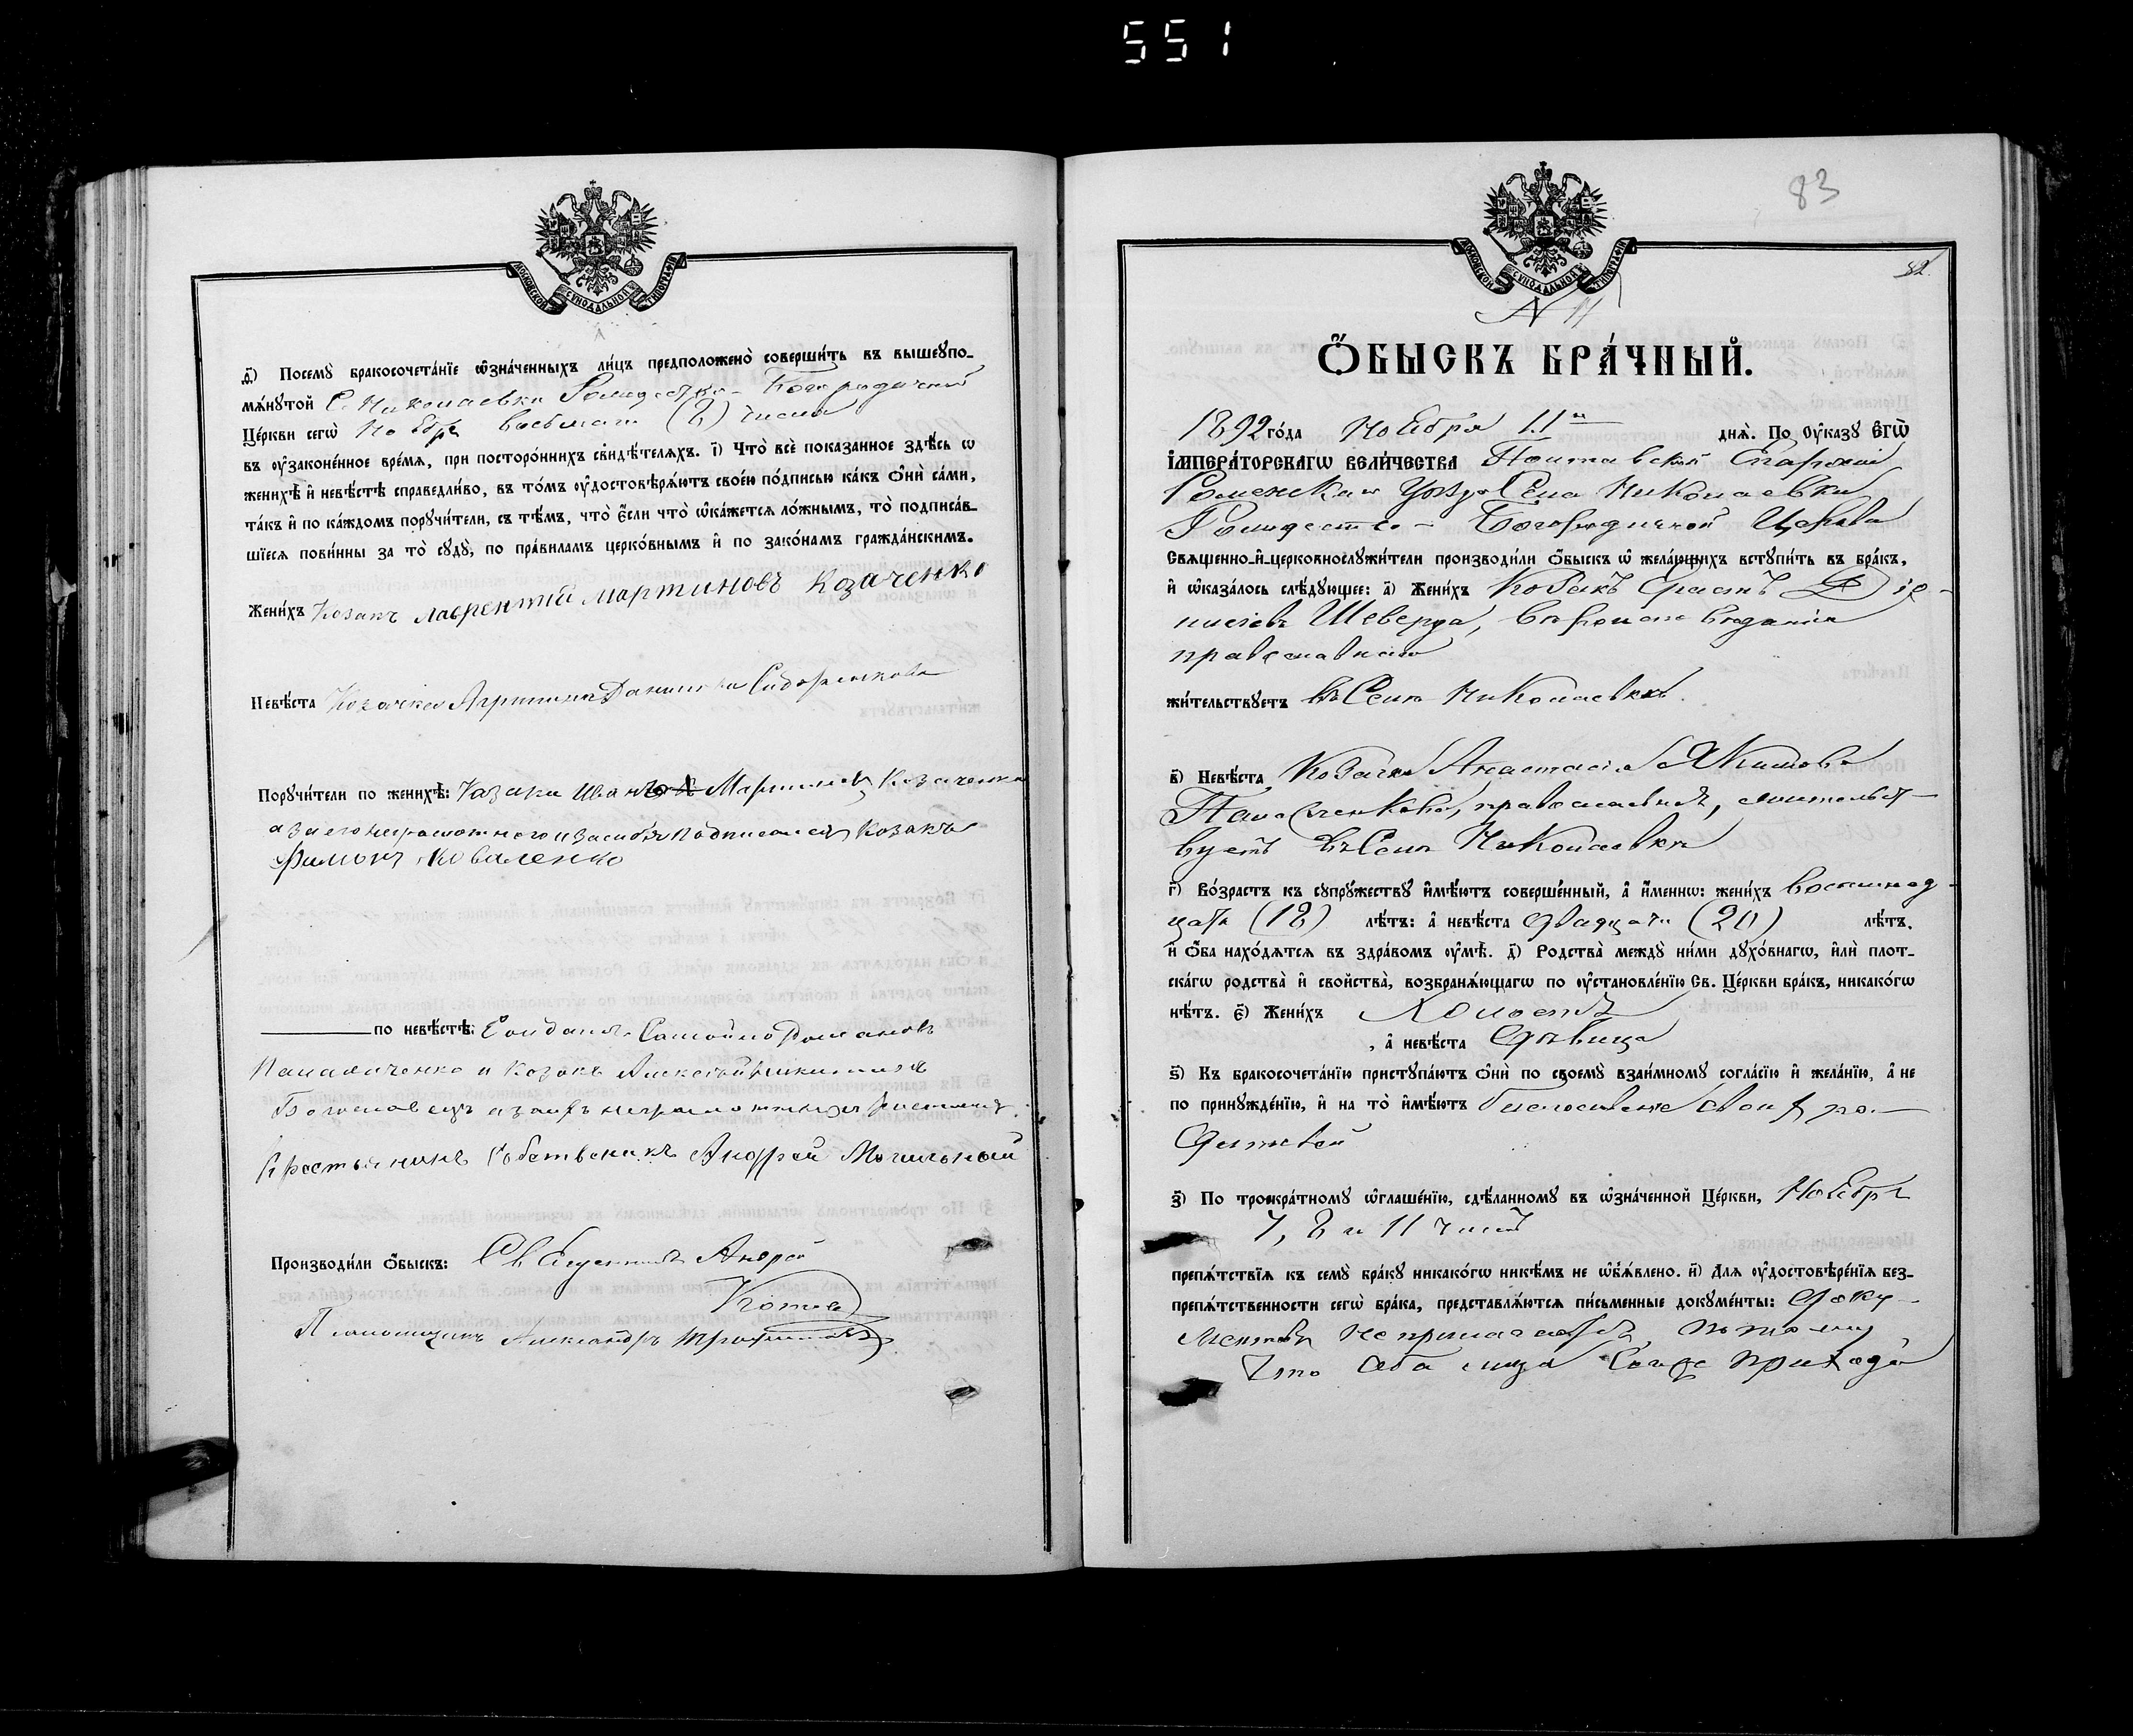 551
МОСКОВСКОЙ СѴНОДАЛЬНОЙ ТИПОГРАФІИ
ѳ҃) Посемꙋ бракосочета́нїе ѡ҆зна́ченныхъ ли́цъ предположено̀ соверши́ть въ вышеꙋпо-
мѧ́нꙋтой С. Николаевки Рождество-Богородичной
Це́ркви сегѡ̀ Ноября восьмаго (8) числа
въ ᲂу҆зако́ненное вре́мѧ, при посторо́ннихъ свидѣ́телѧхъ. і҃) Что̀ всѐ показанное здѣ́сь ѡ
женихѣ̀ и҆ невѣ́стѣ справедли́во, въ то́мъ ᲂу҆достовѣрѧ́ютъ свое́ю по́дписью ка́къ ѻ҆нѝ са́ми,
та́къ и҆ по ка́ждомъ порꙋчи́тели, съ тѣ́мъ, что̀ є҆́сли что̀ ѡ҆ка́жетсѧ ло́жнымъ, то̀ подписа́в-
шїесѧ пови́нны за то̀ сꙋдꙋ̀, по пра́виламъ церко́внымъ и҆ по зако́намъ гражда́нскимъ.
Жени́хъ Козакъ Лаврентій Мартиновъ Козаченко
Невѣ́ста Козачка Агрипина Данилова
Порꙋчи́тели по женихѣ̀: Казаки Иванъ Мартиновъ Козаченко
а за его неграмотнаго подписался Козакъ
Филонъ Коваленко
по невѣ́стѣ: Солдатъ Самойло Романовъ
Панасиченко и Козакъ Алексѣй
а за ихъ неграмотныхъ
Крестьянинъ Собственикъ Андрей Могильный
Производи́ли ѻ҆́быскъ: Священникъ Андрей
Псаломщикъ Александръ
83
МОСКОВСКОЙ СѴНОДАЛЬНОЙ ТИПОГРАФІИ
82.
N 11
Ѻ҆́БЫСКЪ БРА́ЧНЫЙ.
1892 го́да Ноября 11 дня̀. По ᲂу҆ка́зꙋ Е҆гѡ̀
І҆МПЕРА́ТОРСКАГѠ ВЕЛИ́ЧЕСТВА Полтавской Епархіи
Роменскаго Уѣзда Села Николаевки
Рождество-Богородичной Церкви
Свѧщенно-и҆-церковнослꙋжи́тели производи́ли ѻ҆́быскъ ѡ҆ жела́ющихъ вступи́ть въ бра́къ,
и҆ ѡ҆каза́лось слѣ́дꙋющее: а҃) Жени́хъ Козакъ Ерастъ Діо-
нисіевъ Шеверда, вѣроисповѣданія
православнаго
жи́тельствꙋетъ въ Селѣ Николаевкѣ.
в҃) Невѣ́ста Козачка Анастасія Якимова
православная, жительст-
вуетъ въ Селѣ Николаевкѣ
г҃) Во́зрастъ къ сꙋпрꙋ́жествꙋ и҆мѣ́ютъ соверше́нный, а҆ и҆́меннѡ: жени́хъ восемнад-
цать (18) лѣ́тъ: а҆ невѣ́ста двадцать (20) лѣ́тъ.
и҆ ѻ҆́ба нахо́дѧтсѧ въ здра́вомъ ᲂу҆мѣ̀. д҃) Родства̀ междꙋ̀ ни́ми дꙋхо́внагѡ, и҆лѝ плот-
ска́гѡ родства̀ и҆ свойства̀, возбранѧ́ющагѡ по ᲂу҆становле́нїю Св. Це́ркви бра́къ, никако́гѡ
нѣ́тъ. є҃) Жени́хъ Холостъ
, а҆ невѣ́ста Дѣвица
ѕ҃) Къ бракосочета́нїю пристꙋпа́ютъ ѻ҆нѝ по своемꙋ̀ взаи́мномꙋ согла́сїю и҆ жела́нїю, а҆ не
по принꙋжде́нїю, и҆ на то̀ и҆мѣ́ютъ благословеніе своихъ ро-
дителей
з҃) По троекра́тномꙋ ѡ҆глаше́нїю, сдѣ́ланномꙋ въ ѡ҆зна́ченной Це́ркви, Ноября
7, 8 и 11 чиселъ
препѧ́тствїѧ къ семꙋ̀ бра́кꙋ никако́гѡ никѣ́мъ не ѡ҆б̾ѧ́влено. и҃) Для ᲂу҆достовѣре́нїѧ без-
препѧ́тственности сегѡ̀ бра́ка, представлѧ́ютсѧ пи́сьменные докꙋме́нты: доку-
ментовъ не прилагается, потому
что оба лица сего прихода